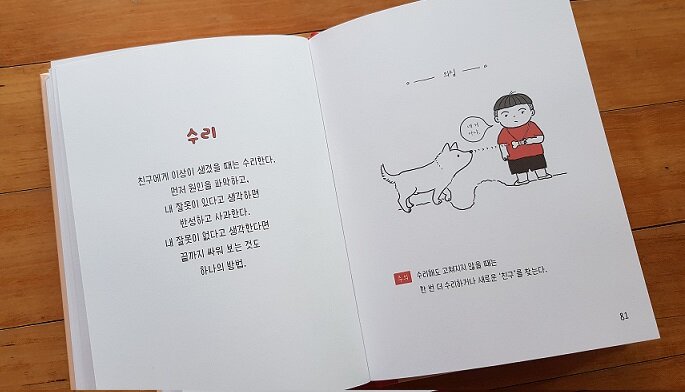 수리
친구에게 이상이 생겼을 때는 수리한다.
먼저 원인을 파악하고,
내 잘못이 있다고 생각하면
반성하고 사과한다.
내 잘못이 없다고 생각한다면
끝까지 싸워 보는 것도
하나의 방법.
수리해도 고쳐지지 않을 때는
한 번 더 수리하거나 새로운 '친구'를 찾는다.
81